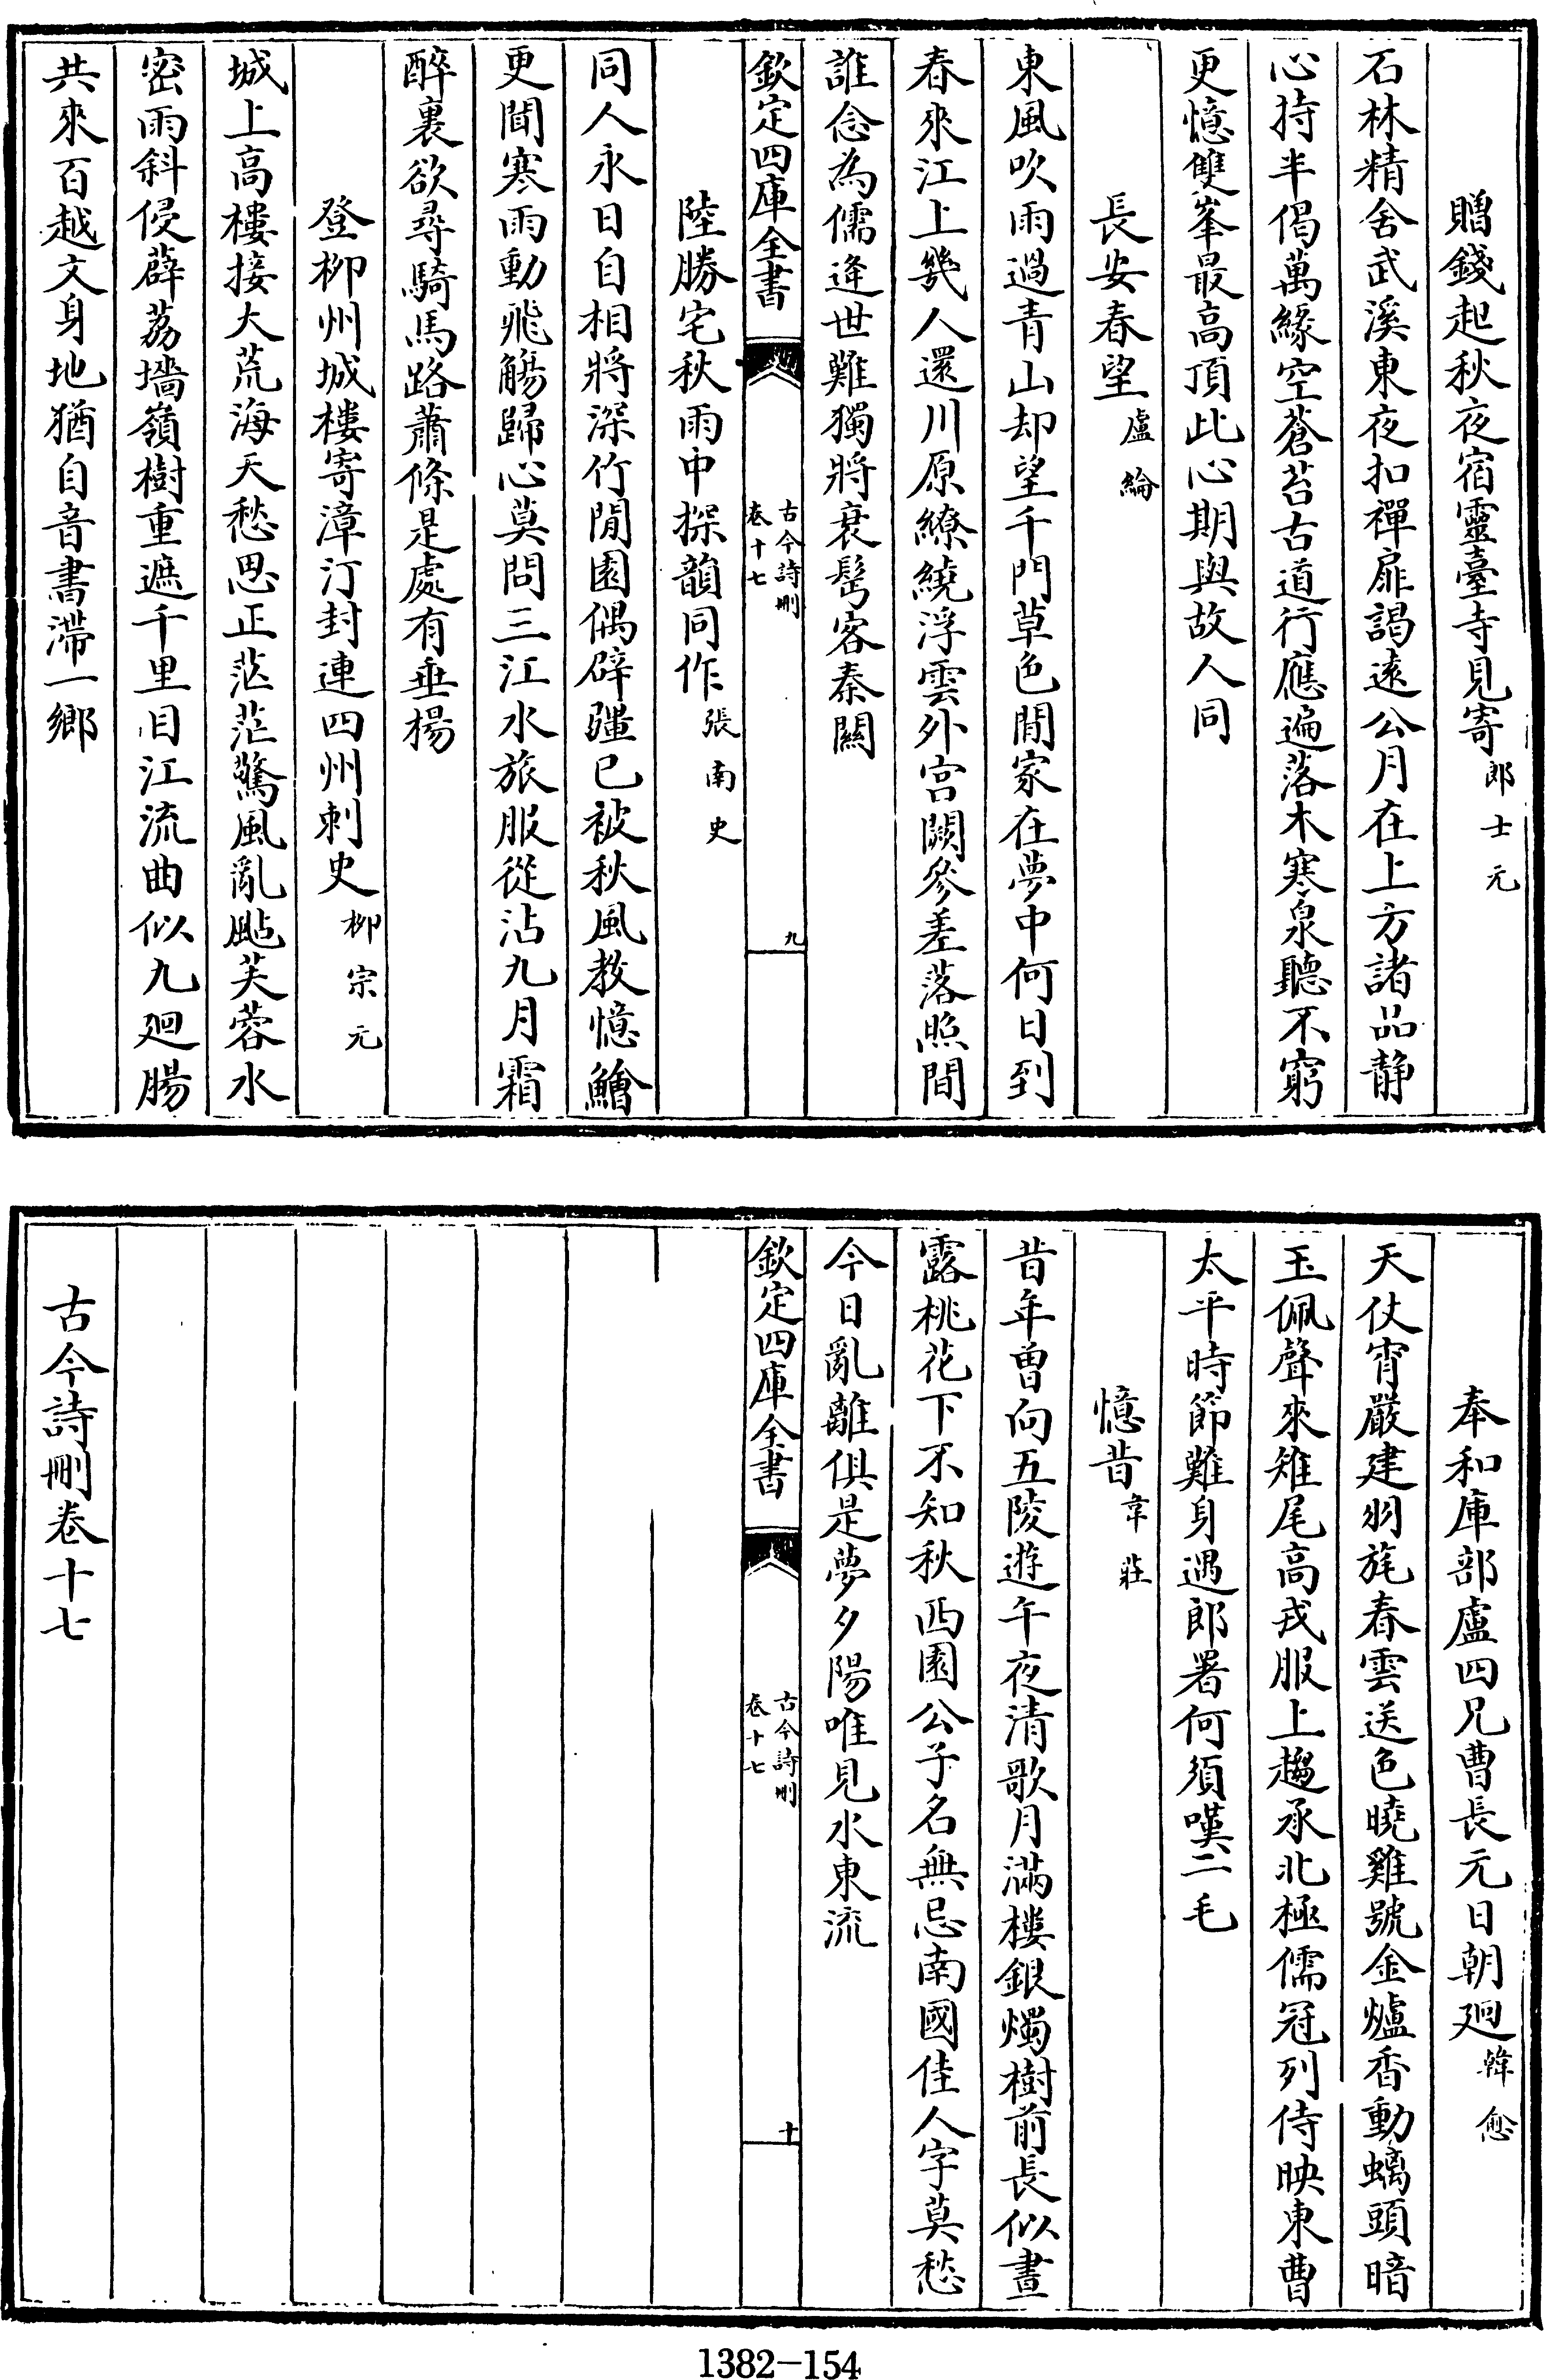 贈錢起秋夜宿靈臺寺見寄郎士元
石林精舍武溪東夜扣禪扉謁遠公月在上方諸品靜
心持半偈萬緣空蒼苔古道行應遍落木寒泉聽不窮
更憶雙峯最高頂此心期與故人同
長安春望盧綸
東風吹雨過青山却望千門草色閒家在夢中何日到
春來江上幾人還川原繚繞浮雲外宮闕參差落照間
誰念為儒逢世難獨將衰髩客秦關
欽定四庫全書
古今詩刪
卷十七
九
陸勝宅秋雨中探韻同作張南史
同人永日自相將深竹閒園偶辟疆已被秋風教憶鱠
更聞寒雨動飛觴歸心莫問三江水旅服從沾九月霜
醉裏欲尋騎馬路蕭條是處有垂楊
登柳州城樓寄漳汀封連四州刺史柳宗元
城上高樓接大荒海天愁思正茫茫驚風亂颭芙蓉水
密雨斜侵薜荔墻嶺樹重遮千里目江流曲似九廻腸
共來百越文身地猶自音書滯一鄉
奉和庫部盧四兄曹長元日朝廻韓愈
天仗宵嚴建羽旄春雲送色曉雞號金爐香動螭頭暗
玉佩聲來雉尾高戎服上趨承北極儒冠列侍映東曹
太平時節難身遇郎署何須嘆二毛
憶昔韋莊
昔年曾向五陵遊午夜清歌月滿樓銀燭樹前長似晝
露桃花下不知秋西園公子名無忌南國佳人字莫愁
今日亂離俱是夢夕陽唯見水東流
欽定四庫全書
古今詩刪
卷十七
十
古今詩刪卷十七
1382-154